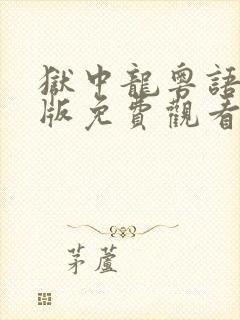 獄中龍粵語
版免費觀看
茅蘆